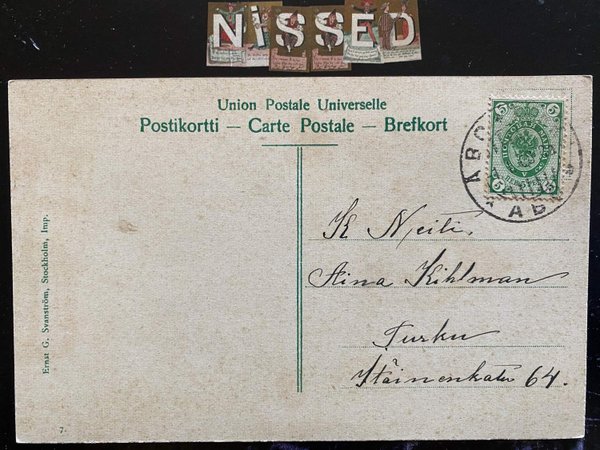 NiSSED
Union Postale Universelle
Postikortti — Carte Postale — Brefkort
5 5
5 5
ABO
AB
K Neiti
Aina Kihlman
Turku
Itäinenkatu 64.
Ernst G. Svanström, Stockholm, Imp.
7.